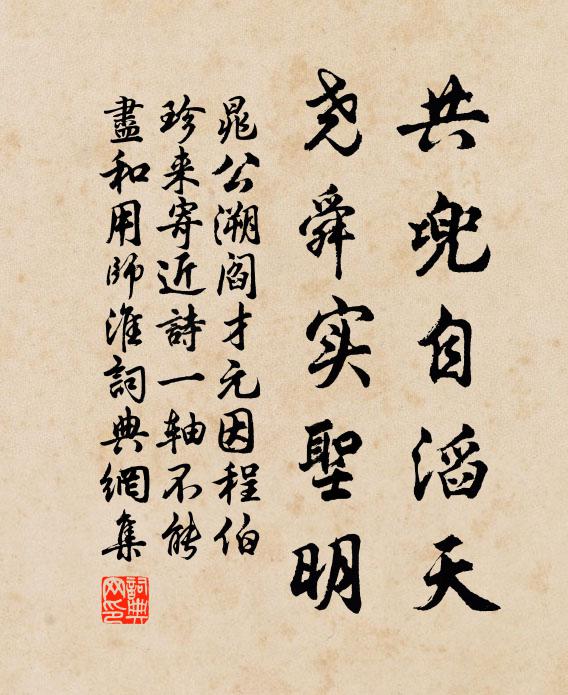 共兜自滔天
尧舜实聖明
晁公溯阎才元因程伯
珍来寄近詩一轴不能
盡和用師淮詞典網集
詞典网印